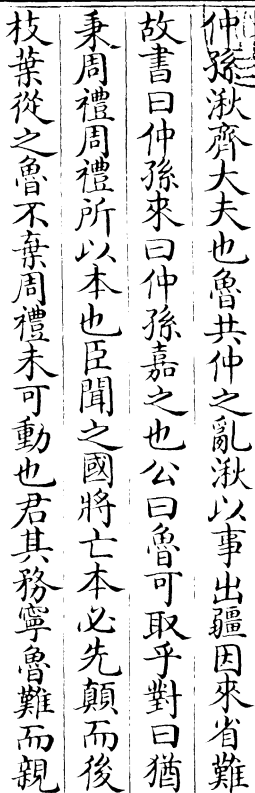 仲孫湫齊大夫也魯共仲之亂湫以事出疆因來省難
故書曰仲孫來曰仲孫嘉之也公曰魯可取乎對曰猶
秉周禮周禮所以本也臣聞之國將亡本必先顛而後
枝葉從之魯不棄周禮未可動也君其務寧魯難而親